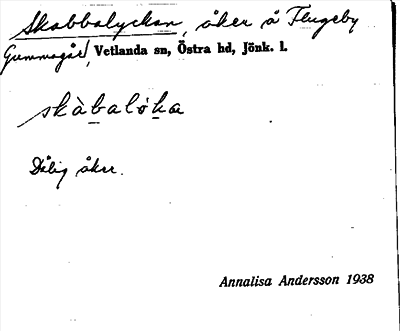 Skabbalyckan, åker å Flugeby
Gummagård, Vetlanda sn, Östra hd, Jönk. l.
skàbalo̍ka
Dålig åker.
Annalisa Andersson 1938